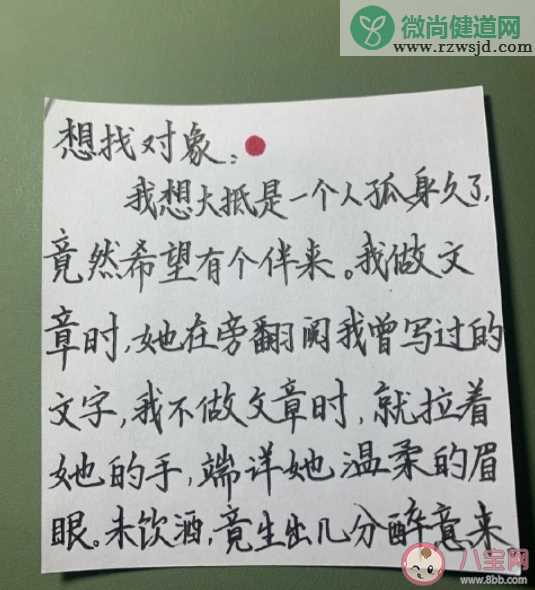 微尚健道网
www.rzwsjd.com
想找对象：
我想大抵是一个人孤身久了，
竟然希望有个伴来。我做文
章时，她在旁翻阅我曾写过的
文字，我不做文章时，就拉着
她的手，端详她温柔的眉
眼。未饮酒，竟生出几分醉意来
八宝网
www.8bb.com